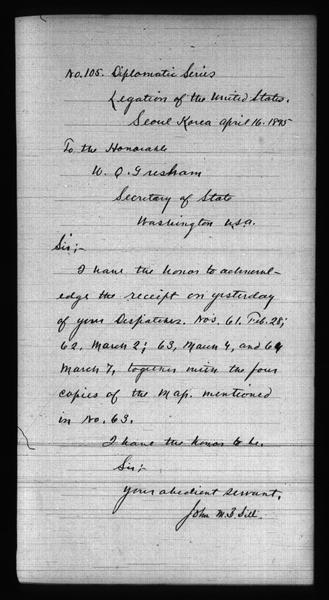 No. 105. Diplomatic Series
Legation of the United States.
Seoul Korea April 16. 1895
To the Honorable
W. Q. Gresham
Secretary of State
Washington U.S.A.
Sir;-
I have the honor to acknowl-
edge the receipt on yesterday
of your Despatches. Nos. 61. Feb. 28;
62, March 2; 63, March 4, and 64
March 7, together with the four
copies of the Map. mentioned
in No. 63.
I have the honor to be.
Sir;-
your obedient servant,
John M. B. Sill.